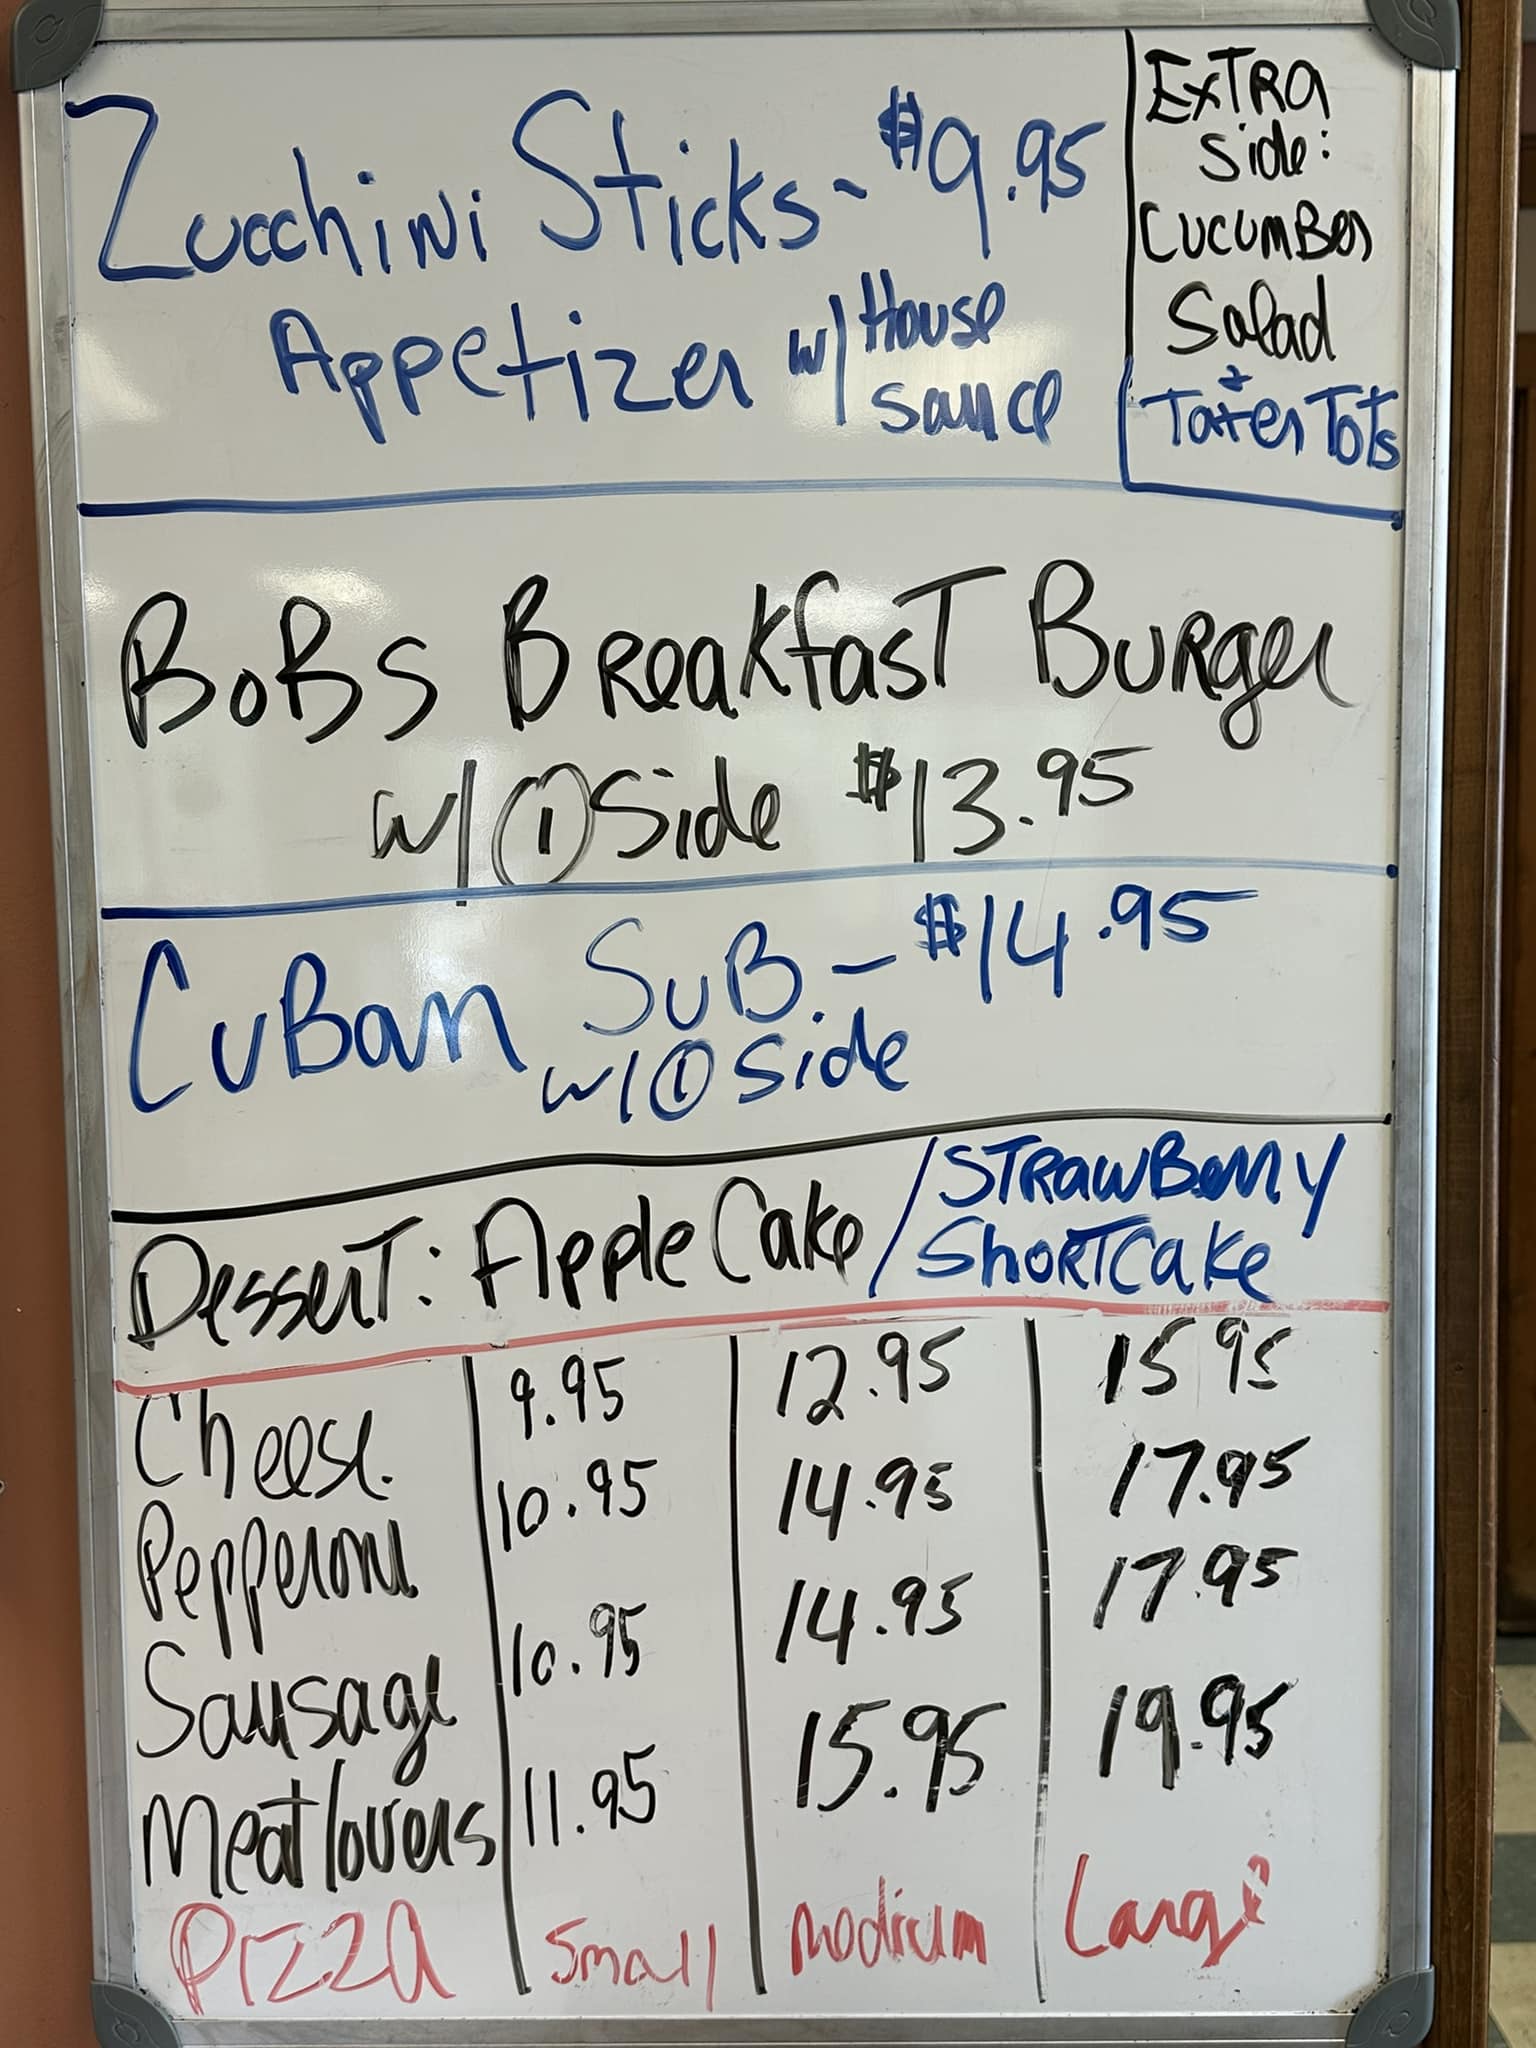 Zucchini Sticks - $9.95
Appetizer w/ House
sauce
Extra
side:
Cucumber
Salad
+
Tater Tots
BoBs Breakfast Burger
w/ ① Side $13.95
Cuban Sub. - $14.95
w/ ① Side
Dessert: Apple Cake / Strawberry
Shortcake
Cheese. 9.95 12.95 15 95
Pepperoni 10.95 14.95 17.95
Sausage 10.95 14.95 17.95
Meatlovers 11.95 15.95 19.95
Pizza Small Medium Large